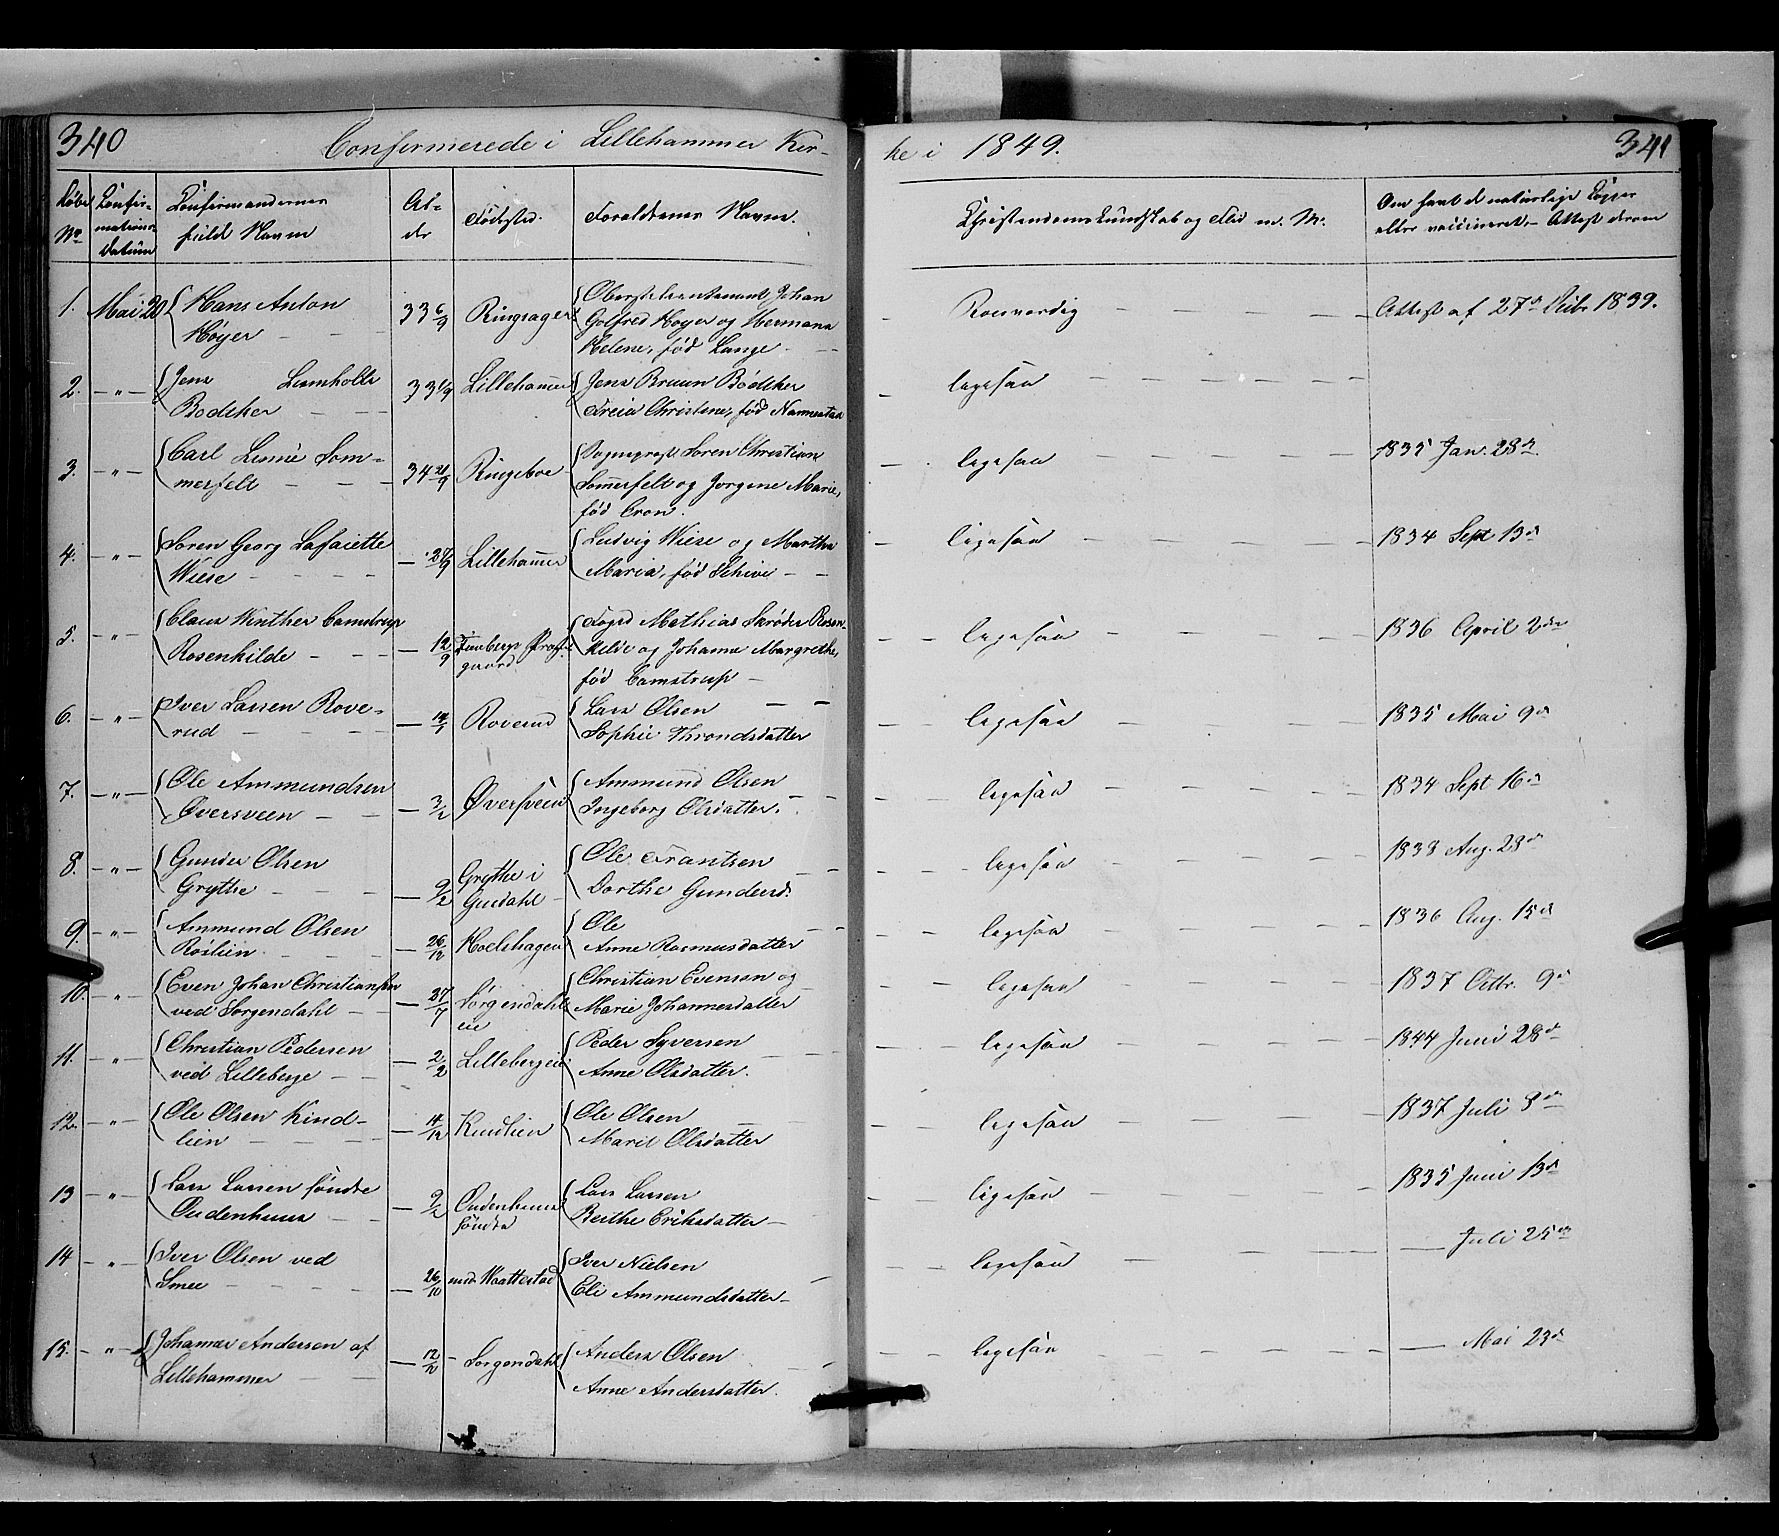 340
Confirmerede i Lillehammer Kir-
ke i 1849.
341
Løbe No
Confir-
mations
Datum
Confirmandernes
fulde Navn
Al-
der
Fødested.
Forældrenes Navne.
Christendomskundskab og Flid m. M.
Om havt de naturlige Kopper
eller vaccineret, – Attest derom
1. Mai 20 Hans Anton
Høyer
33 6/9 Ringsager
Johan
Golfred Høyer og Hermana
Helene, født Lange
Roesværdig
Attest af 27de 1839.
2. – " – Jens Lumholtz
Bødtker
33 Lillehammer
Jens Bruun Bødtker
Christene, fød Nannestad
ligesaa
3. – " – Carl Linné Som-
merfelt
34 21/9 Ringeboe
Sogneprest Søren Christian
Sommerfelt og Jørgene Marie,
fød Cron.
ligesaa
1835 Jan. 28de
4. – " – Søren Georg Lafaiette
Wiese
Lillehammer
Ludvig Wiese og Martha
Maria, fød Schive
ligesaa
1834 Sept 13de
5. – " – Claus Winther Camstrup
Rosenkilde
– 12/9
gaard
Foged Mathias Skrøder Rosen-
kilde og Johanne Margrethe,
fød Camstrup
ligesaa
1836 April 2den
6. – " – Iver Larsen Rove-
rud
– 14/1 Roverud
Lars Olsen
Sophie Throndsdatter
ligesaa
1835 Mai 9de
7. – " – Ole Ammundsen
Øversveen
– 3/2 Øversveen
Ammund Olsen
Ingeborg Olsdatter.
ligesaa
1834 Sept 16de
8. – " – Gunder Olsen
Grythe
– 9/2 Grythe i
Gusdahl
Ole Frantsen
Dorthe Gundersd.
ligesaa
1838 Aug. 28de
9. – " – Ammund Olsen
Roslien
– 26/12
Ole
Anne Rasmusdatter
ligesaa
1836 Aug. 15de
10. – " – Even Johan Christiansen
ved Sorgendahl
– 27/7 Sorgendahls
eie
Christian Evensen og
Marie Johannesdatter
ligesaa
1837 Octbr. 9de
11. – " – Christian Pedersen
ved Lilleberge
– 2/2 Lillebergeie
Peder Syversen
Anne Olsdatter.
ligesaa
1844 Juni 28de
12. – " – Ole Olsen Kind-
lien
– 14/12 Kindlien
Ole Olsen
Marit Olsdatter
ligesaa
1837 Juli 8de
13 – " – Lars Larsen søndre
Oudenhuus
– 9/2 Oudenhuus
søndre
Lars Larsen
Berthe Eriksdatter –
ligesaa
1835 Juni 13de
14 – " – Iver Olsen ved
Smee
– 26/10
Iver Nielsen
Eli Ammundsdatter –
ligesaa
– Juli 25de
15. – " – Johannes Andersen af
Lillehammer
Sorgendahl
Anders Olsen
Anne Andersdatter.
ligesaa
– Mai 23de